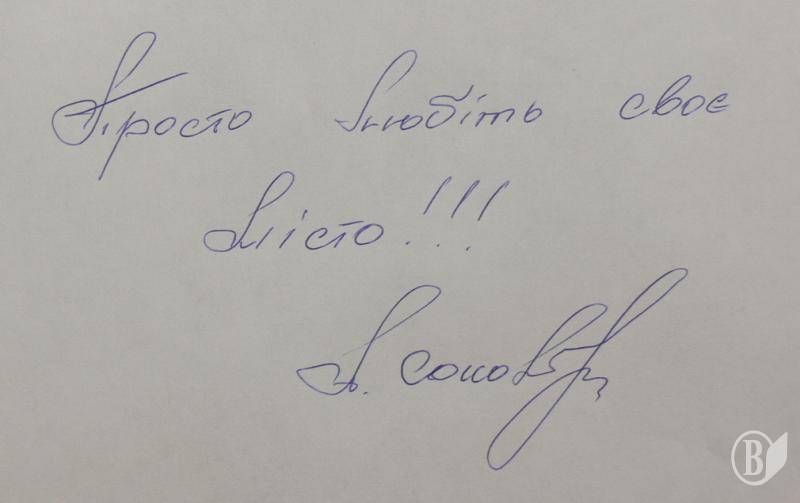 Просто любіть своє
місто!!!
В